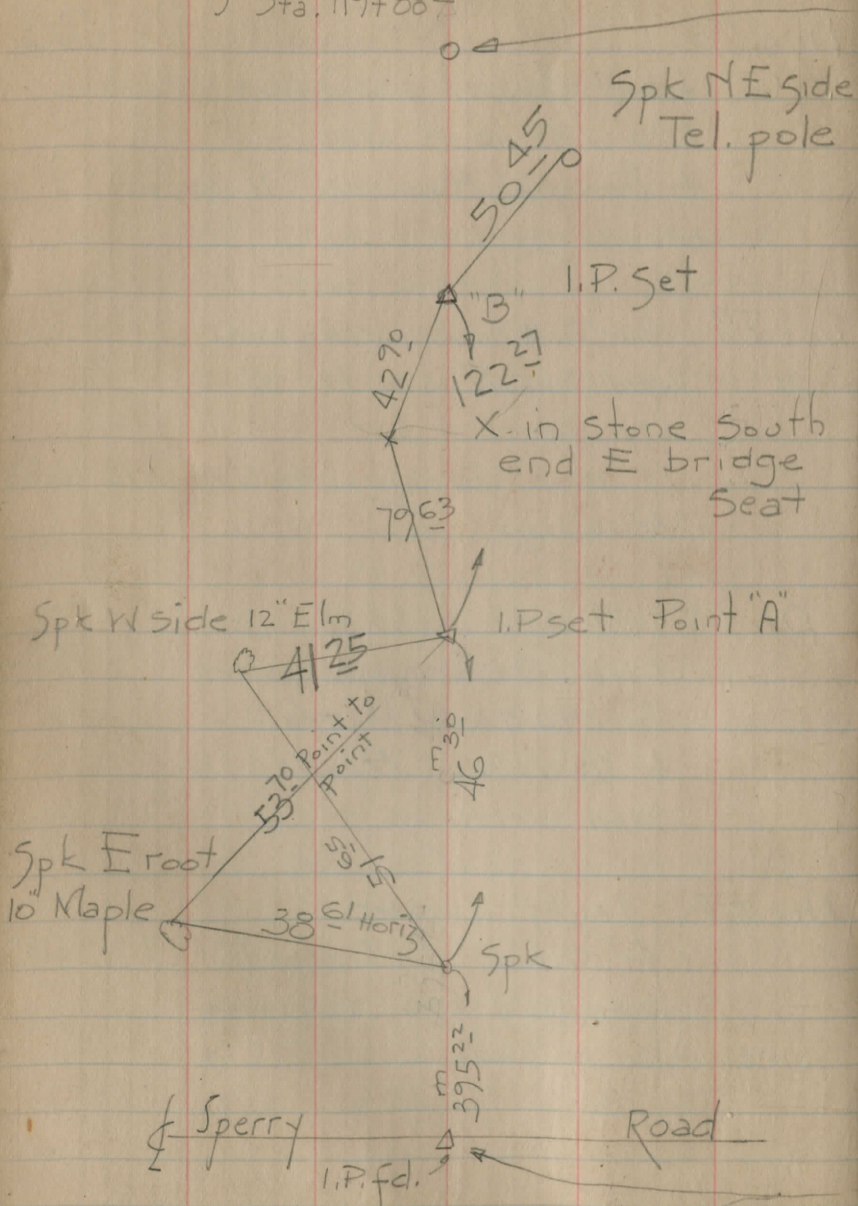 Sta. 117+00
Spk N E side
Tel. pole
50 45
I.P. Set
"B"
42 90
122 27
X in stone South
end E bridge
Seat
79 63
Spk W side 12" Elm
I.P set Point "A"
41 25
Point to
Point
53 70
E 46 30
Spk E root
10" Maple
38 61 Horiz
Spk
E 395 22
Sperry Road
I.P. fd.